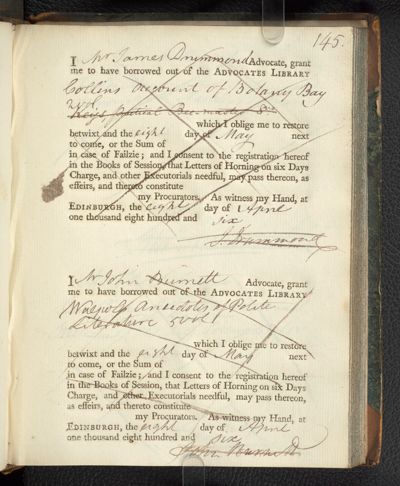 145.
I Mr James Drummond Advocate, grant
me to have borrowed out of the ADVOCATES LIBRARY
Collins account of Botany Bay
2 vol.
Keys
which I oblige me to restore
betwixt and the eight day of May next
to come, or the Sum of
in case of Failzie; and I consent to the registration hereof
in the Books of Session, that Letters of Horning on six Days
Charge, and other Executorials needful, may pass thereon, as
effeirs, and thereto constitute
my Procurators. As witness my Hand, at
EDINBURGH, the eight day of April
one thousand eight hundred and six
J. Drummond
I Mr John Burnett Advocate, grant
me to have borrowed out of the ADVOCATES LIBRARY
Walpole Anecdotes of Polite
Literature 5 vol
which I oblige me to restore
betwixt and the eight day of May next
to come, or the Sum of
in case of Failzie; and I consent to the registration hereof
in the Books of Session, that Letters of Horning on six Days
Charge, and other Executorials needful, may pass thereon,
as effeirs, and thereto constitute
my Procurators. As witness my Hand, at
EDINBURGH, the eight day of April
one thousand eight hundred and six
John Burnett